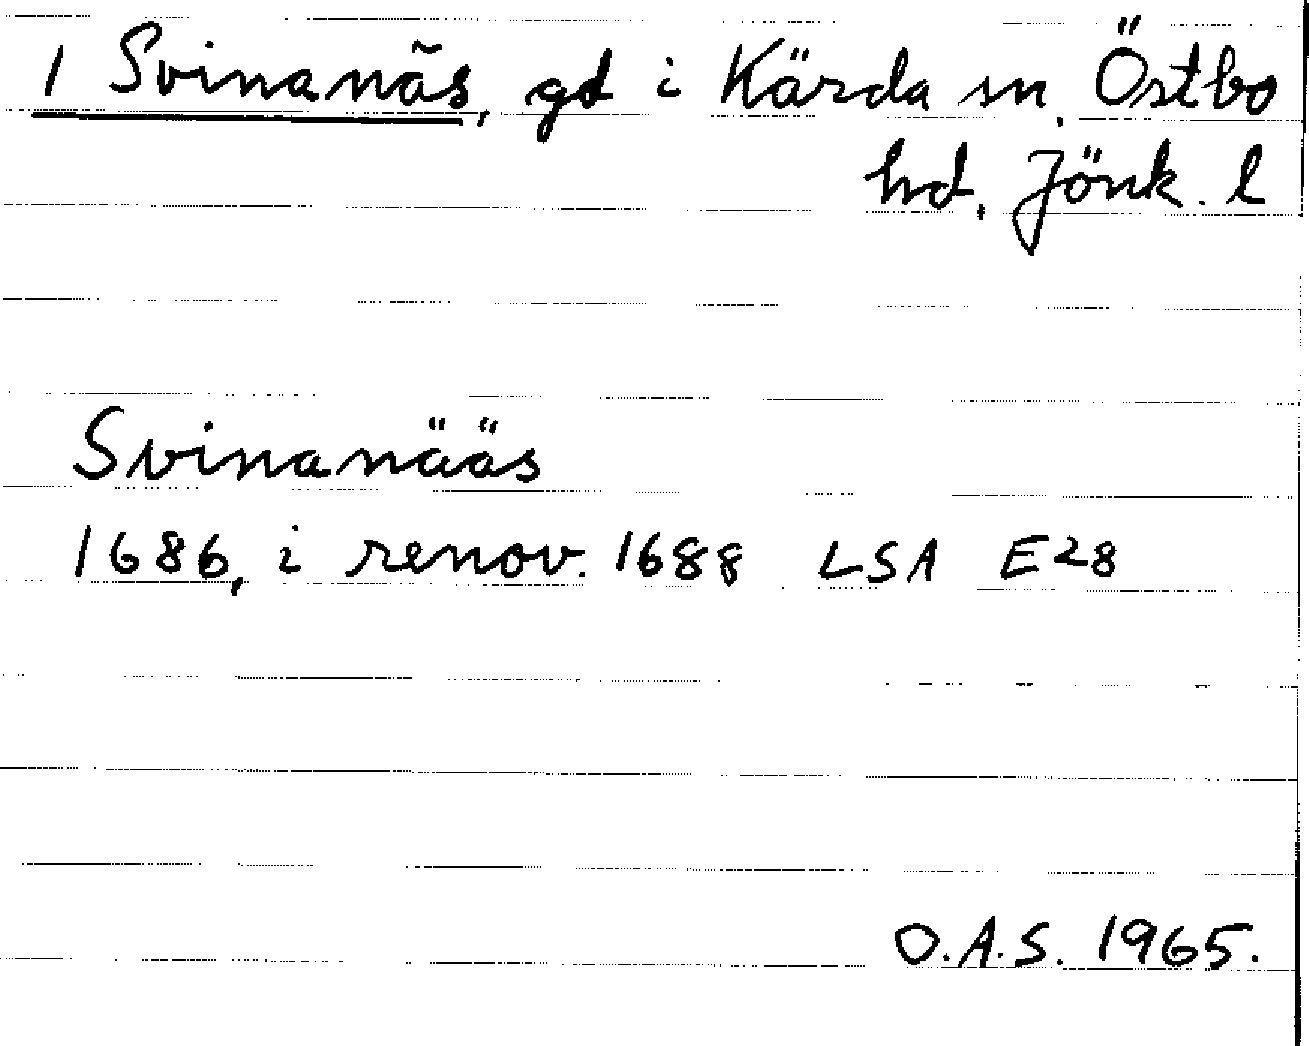 1 Svinanäs, gd i Kärda sn, Östbo
hd, Jönk. l
Svinanääs
1686, i renov. 1688 LSA E28
O.A.S. 1965.